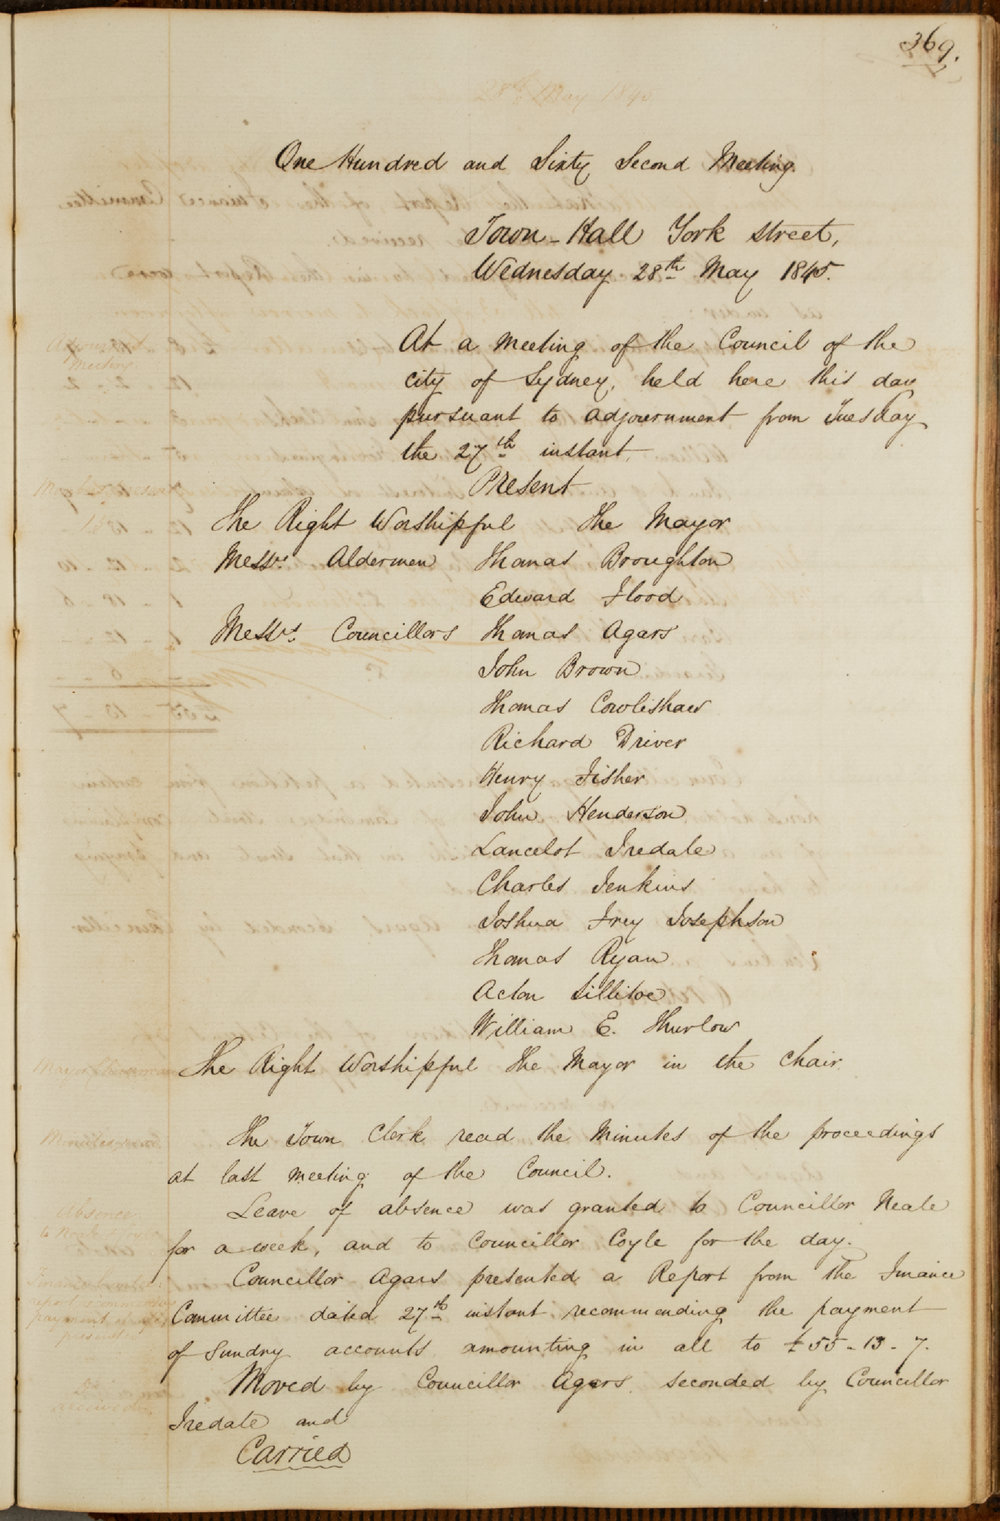 369.
28th May 1845
One Hundred and Sixty Second Meeting.
Town-Hall York Street,
Wednesday 28th May 1845.
Adjourned
Meeting
At a Meeting of the Council of the
city of Sydney, held here this day
pursuant to adjournment from Tuesday
the 27th instant.
Present
The Right Worshipful The Mayor
Messrs. Aldermen Thomas Broughton
Edward Flood
Messrs. Councillors Thomas Agars
John Brown
Thomas Cowlishaw
Richard Driver
Henry Fisher
John Henderson
Lancelot Iredale
Charles Jenkins
Joshua Frey Josephson
Thomas Ryan
Acton Sillitoe
William E. Thurlow
The Right Worshipful The Mayor in the Chair
Minutes read
The Town Clerk read the Minutes of the proceedings
at last Meeting of the Council.
absence
Leave of absence was granted to Councillor Neale
for a week, and to Councillor Coyle for the day.
Councillor Agars presented a Report from the Finance
Committee dated 27th instant recommending the payment
of Sundry accounts amounting in all to £55-13-7.
Moved by Councillor Agars seconded by Councillor
Iredale and
Carried